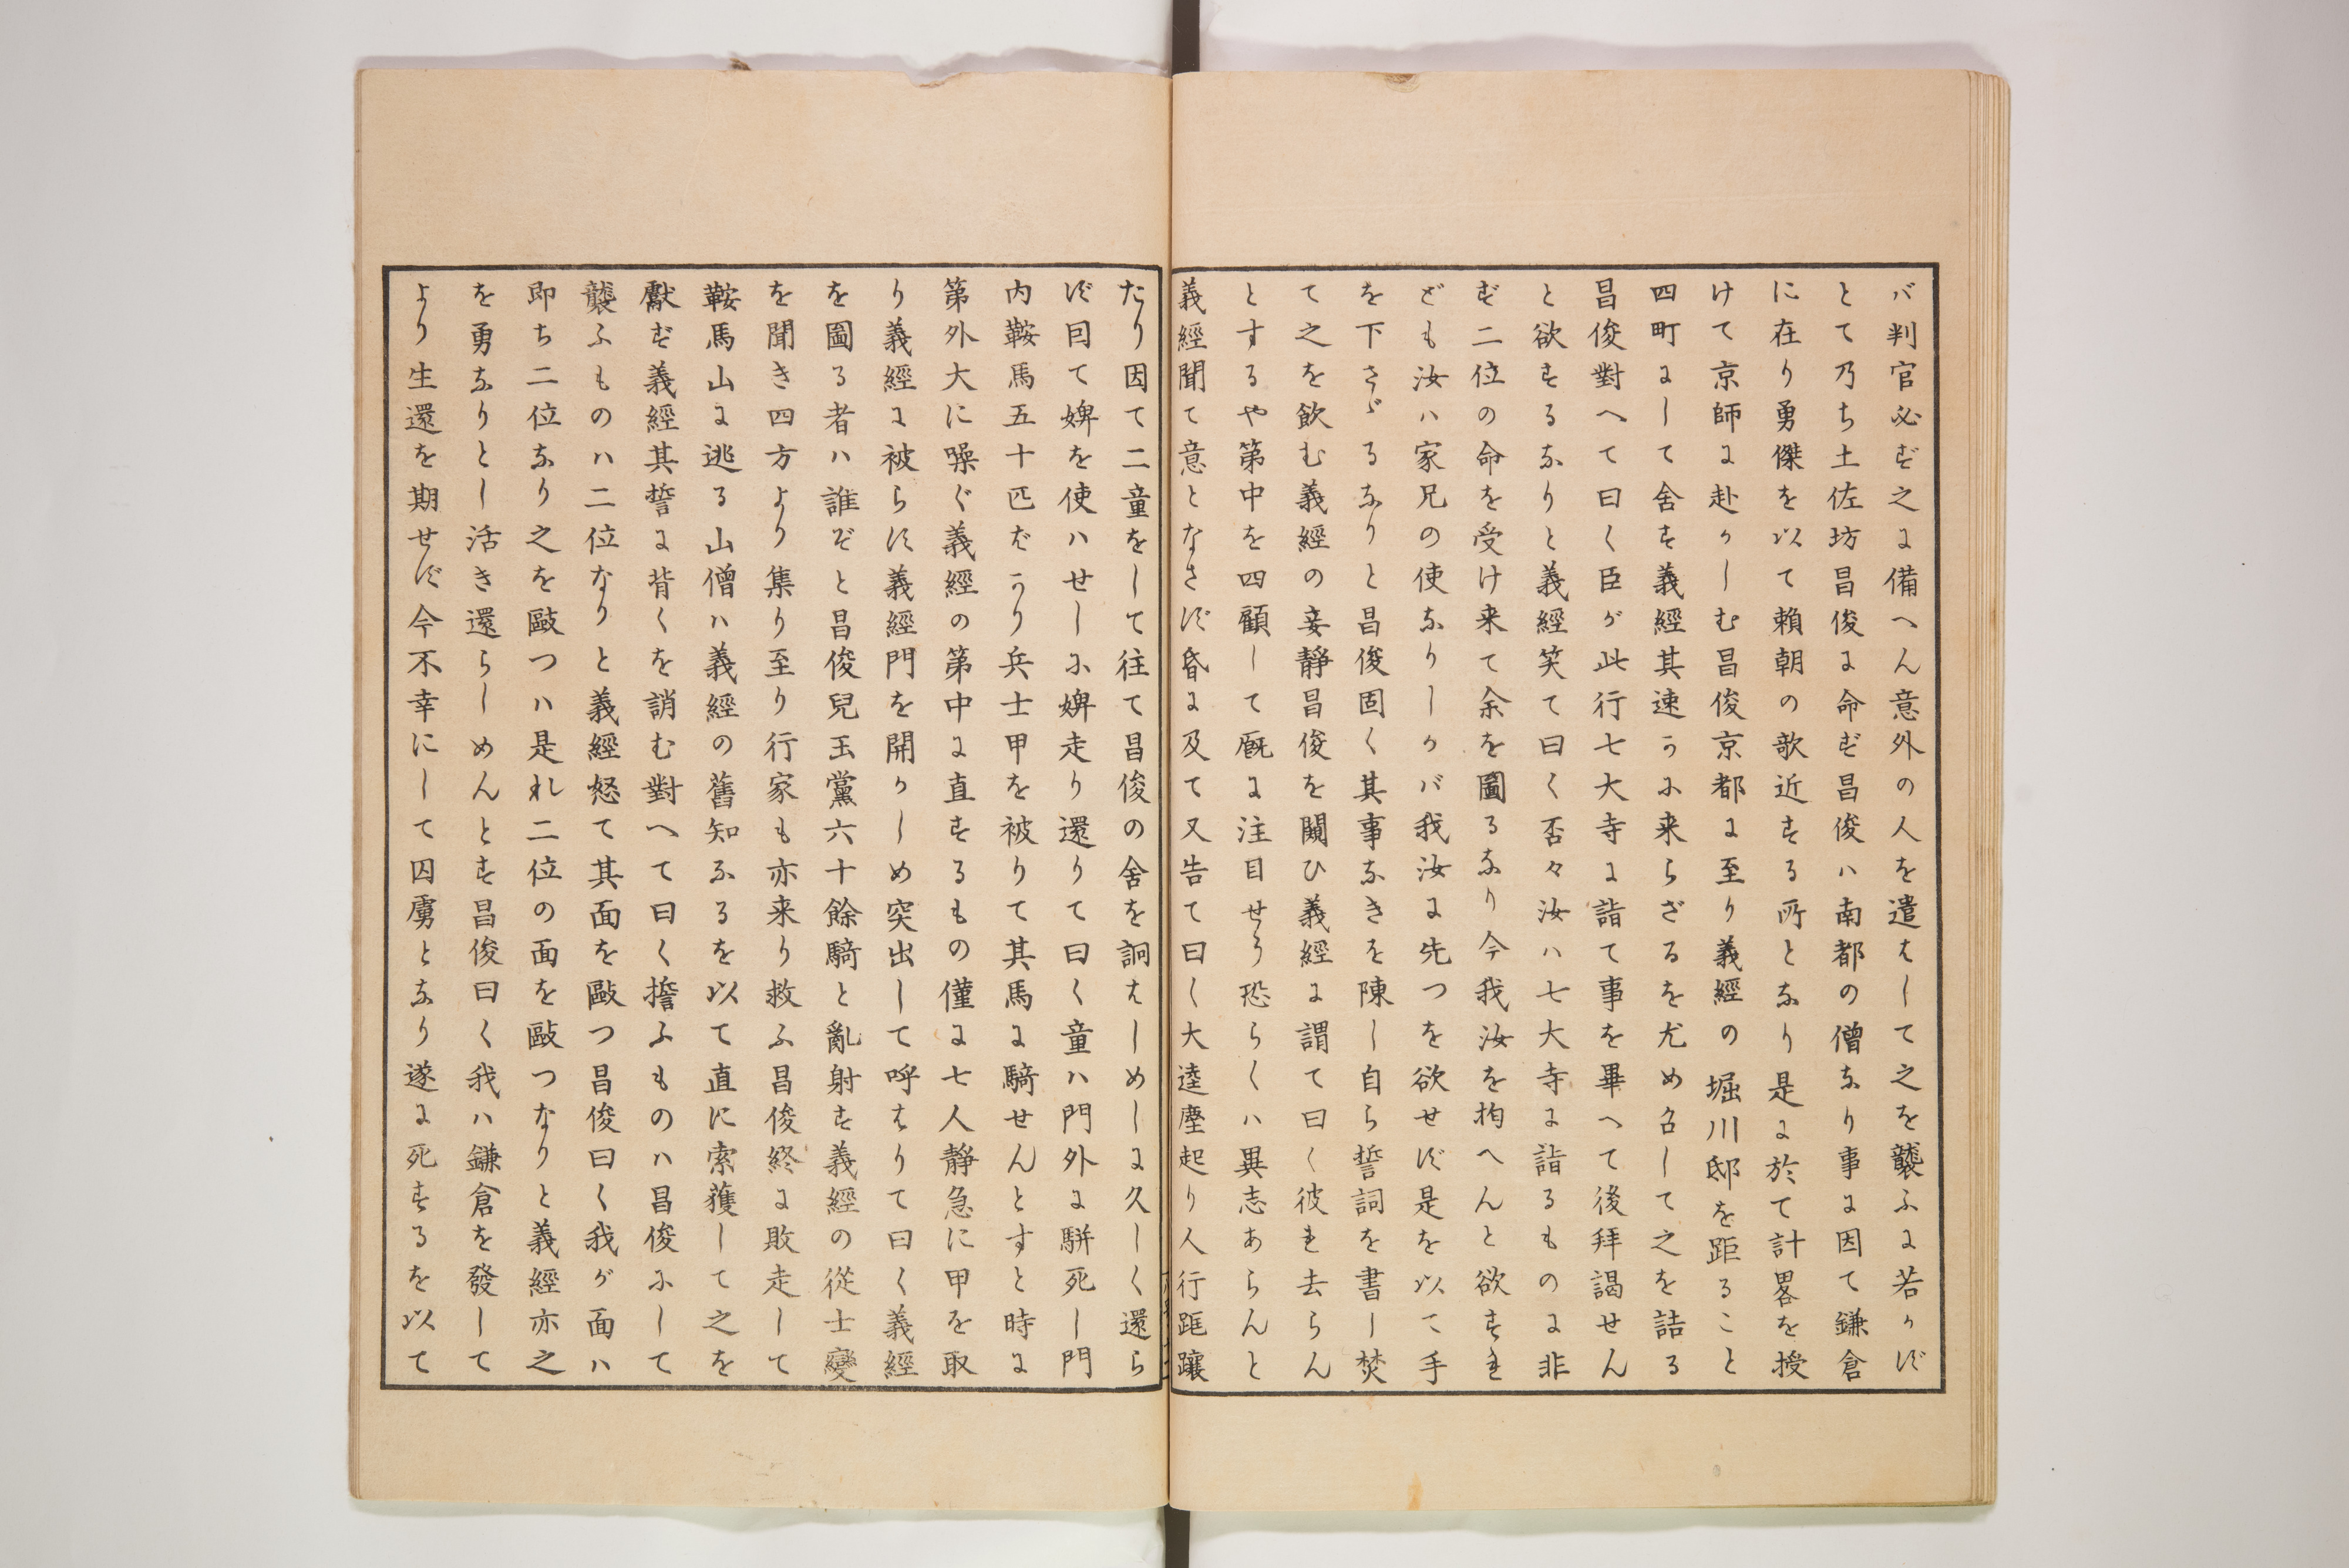 バ判官必ず之に備へん意外の人を遣はして之を襲ふに若かず
とて乃ち土佐坊昌俊に命ず昌俊ハ南都の僧なり事に因て鎌倉
に在り勇傑を以て頼朝の歌近する所となり是に於て計畧を授
けて京師に赴かしむ昌俊京都に至り義經の堀川邸を距ること
四町にして舍す義經其速かに来らざるを尤め召して之を詰る
昌俊對へて曰く臣が此行七大寺に詣て事を畢へて後拜謁せん
と欲するなりと義經笑て曰く否々汝ハ七大寺に詣るものに非
ず二位の命を受け来て余を圖るなり今我汝を拘へんと欲すれ
ども汝ハ家兄の使なりしかバ我汝に先つを欲せず是を以て手
を下さゞるなりと昌俊固く其事なきを陳し自ら誓詞を書し焚
て之を飲む義經の妾靜昌俊を闞ひ義經に謂て曰く彼れ去らん
とするや第中を四顧して厩に注目せり恐らくハ異志あらんと
義經聞て意となさず昏に及て又告て曰く大逵塵起り人行距躟
たり因て二童をして往て昌俊の舍を詗はしめしに久しく還ら
ず囙て婢を使ハせしに婢走り還りて曰く童ハ門外に駢死し門
内鞍馬五十匹ばかり兵士甲を被りて其馬に騎せんとすと時に
第外大に噪ぐ義經の第中に直するもの僅に七人靜急に甲を取
り義經に被らす義經門を開かしめ突出して呼はりて曰く義經
を圖る者ハ誰ぞと昌俊兒玉黨六十餘騎と亂射す義經の從士變
を聞き四方より集り至り行家も亦来り救ふ昌俊終に敗走して
鞍馬山に逃る山僧ハ義經の舊知なるを以て直に索獲して之を
獻ず義經其誓に背くを誚む對へて曰く擔ふものハ昌俊にして
襲ふものハ二位なりと義經怒て其面を毆つ昌俊曰く我が面ハ
即ち二位なり之を毆つハ是れ二位の面を毆つなりと義經亦之
を勇なりとし活き還らしめんとす昌俊曰く我ハ鎌倉を發して
より生還を期せず今不幸にして囚虜となり遂に死するを以て